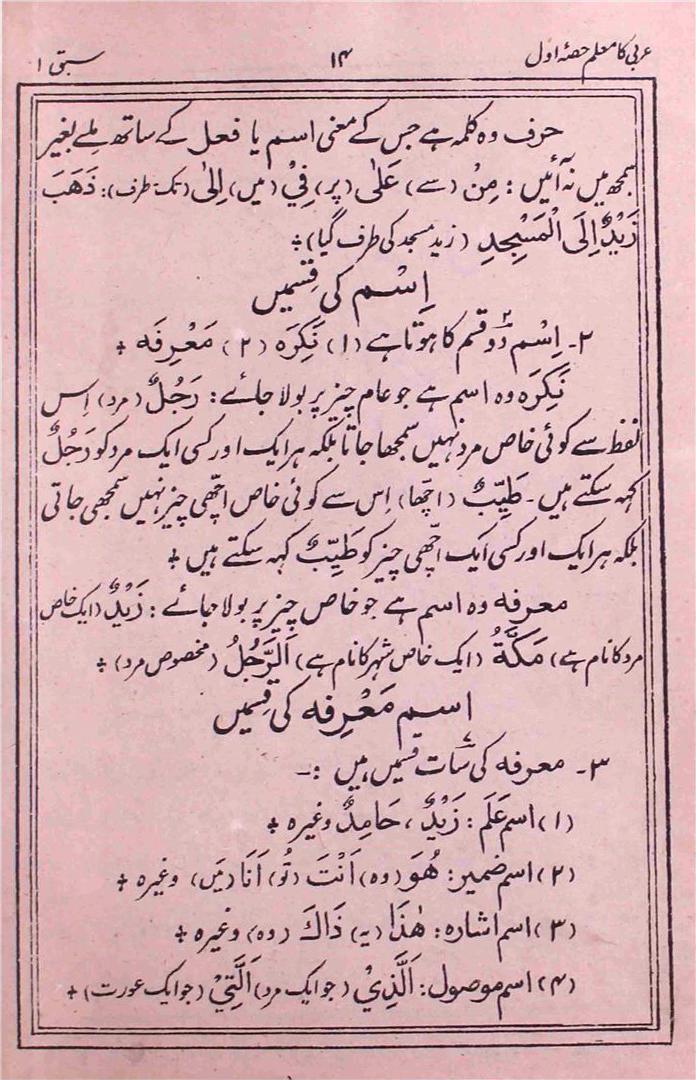 عربی کا معلم حصۂ اول ۱۴ سبق ۱
حرف وہ کلمہ ہے جس کے معنی اسم یا فعل کے ساتھ ملے بغیر
سمجھ میں نہ آئیں : مِنْ (سے) عَلٰی (پر) فِيْ (میں) اِلیٰ (تک۔ طرف): ذَھَبَ
زَیْدٌ اِلَی الْمَسْجِدِ (زید مسجد کی طرف گیا) ٭
اِسْم کی قِسمیں
۲۔ اِسْم دٚو۲ قسم کا ہوتا ہے (۱) نَکِرَہ (۲) مَعْرِفَہ ٭
نَکِرَہ وہ اسم ہے جو عام چیز پر بولا جائے : رَجُلٌ (مرد) اِس
لفظ سے کوئی خاص مرد نہیں سمجھا جاتا بلکہ ہر ایک اور کسی ایک مرد کو رَجُلٌ
کہہ سکتے ہیں۔ طَیِّبٌ (اچّھا) اِس سے کوئی خاص اچّھی چیز نہیں سمجھی جاتی
بلکہ ہر ایک اور کسی ایک اچّھی چیز کو طَیِّبٌ کہہ سکتے ہیں ٭
معرفہ وہ اسم ہے جو خاص چیز پر بولا جائے : زَیْدٌ (ایک خاص
مرد کا نام ہے) مَکَّةُ (ایک خاص شہر کا نام ہے) اَلرَّجُلُ (مخصوص مرد) ٭
اسم مَعْرِفہ کی قِسمیں
۳۔ معرفہ کی سات۷ قِسمیں ہیں :۔
(۱) اسم عَلَم : زَیْدٌ ، حَامِدٌ وغیرہ ٭
(۲) اسم ضمیر : ھُوَ (وہ) اَنْتَ (تُو) اَنَا (مَیں) وغیرہ ٭
(۳) اسم اشارہ : ھٰذَا (یہ) ذَاكَ (وہ) وغیرہ ٭
(۴) اسم موصول : اَلَّذِيْ (جو ایک مرد) اَلَّتِيْ (جو ایک عورت) ٭